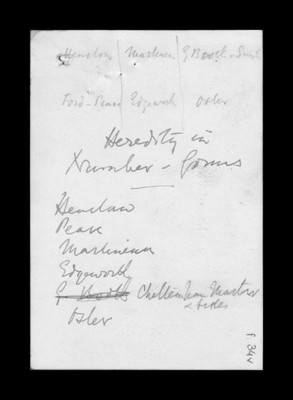 Henslow Martineau G Booth - Smith
Ford - Pease Edgeworth Osler
Heredity in
Number - Forms
Henslow
Pease
Martineau
Edgeworth
G Booth Cheltenham Master
& Sister
Osler
f 34v